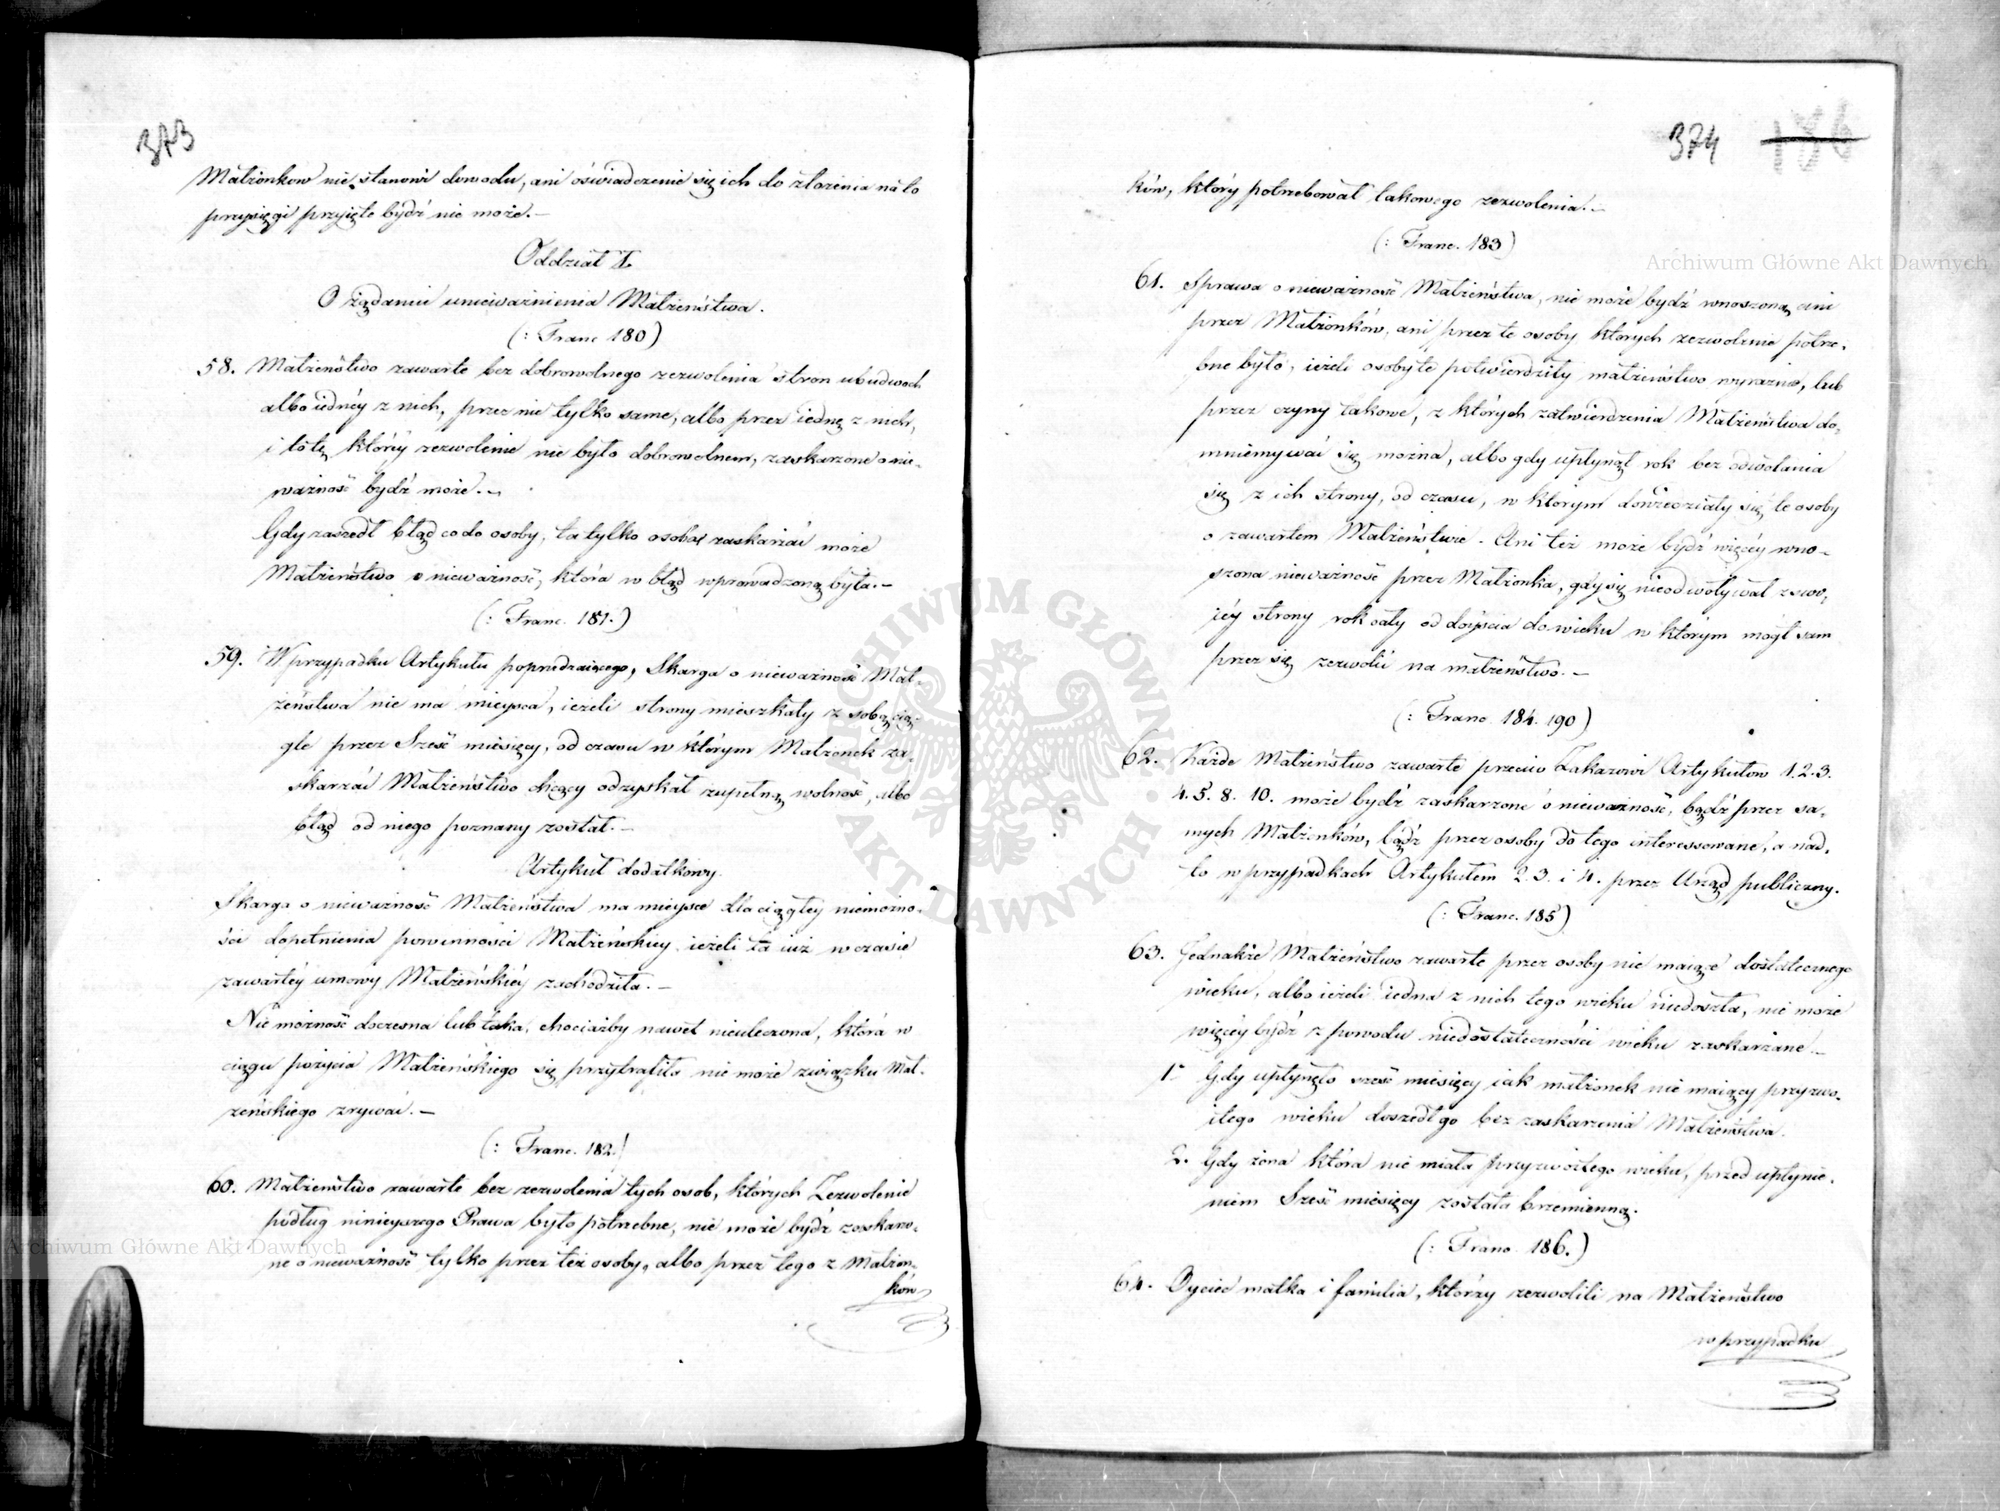 373
Małżonkow nie stanowi dowodu, ani oświadczenie się ich do złożenia na to
przysięgi przyięte bydź nie może.—
Oddział I.
O żądaniu unieważnienia Małżeństwa.
(: Franc 180)
58. Małżeństwo zawarte bez dobrowolnego zezwolenia stron obudwoch
albo iednéy z nich, przez nie tylko same, albo przez iednę z nich,
i to tę, któréy zezwolenie nie było dobrowolnem, zaskarżone o nie-
ważność bydź może.—
Gdy zaszedł błąd co do osoby, ta tylko osoba zaskarżać może
Małżeństwo o nieważność, która w błąd wprowadzoną była.—
(: Franc. 181.)
59. W przypadku Artykułu poprzedzaiącego, Skarga o nieważność Mał-
żeństwa nie ma mieysca, ieżeli strony mieszkały z sobą cią-
gle przez Sześć miesięcy, od czasu w którym Małżonek za-
skarżać Małżeństwo chcący odzyskał zupełną wolność, albo
błąd od niego poznany został.—
Artykuł dodatkowy.
Skarga o nieważność Małżeństwa ma mieysce dla ciągłéy niemożno-
ści dopełnienia powinności Małżeńskiey ieżeli ta iuż w czasie
zawartéy umowy Małżeńskiéy zachodziła.—
Niemożność doczesna lub taka, chociażby nawet nieuleczona, która w
ciągu pożycia Małżeńskiego się przytrafiła nie może związku Mał-
żeńskiego zrywać.—
(: Franc. 182.)
60. Małżeństwo zawarte bez zezwolenia tych osob, których Zezwolenie
podług ninieyszego Prawa było potrzebne, nie może bydź zaskarżo-
ne o nieważność tylko przez też osoby, albo przez tego z Małżon-
ków
374 186
ków, który potrzebował takowego zezwolenia.—
(: Franc. 183)
61. Sprawa o nieważność Małżeństwa, nie może bydź wnoszoną ani
przez Małżonków, ani przez te osoby których zezwolenie potrze-
bne było, ieżeli osoby te potwierdziły małżeństwo wyraźnie, lub
przez czyny takowe, z których zatwierdzenia Małżeństwa do-
mniemywać się można, albo gdy upłynął rok bez odwołania
się z ich strony, od czasu, w którym dowiedziały się te osoby
o zawartem Małżeństwie. Ani też może bydź więcéy wno-
szona nieważność przez Małżonka, gdy się nieodwoływał z swo-
iéy strony rok cały od doyścia do wieku w którym mógł sam
przez się zezwolić na małżeństwo.—
(: Franc 184. 190)
62. Każde Małżeństwo zawarte przeciw Zakazowi Artykułów 1. 2. 3.
4. 5. 8. 10. może bydź zaskarżone o nieważność, bądź przez sa-
mych Małżonków, bądź przez osoby do tego interessowane, a nad-
to w przypadkach Artykułem 2. 3. i 4. przez Urząd publiczny.
(: Franc. 185)
63. Jednakże Małżeństwo zawarte przez osoby nie maiące dostatecznego
wieku, albo ieżeli iedna z nich tego wieku niedoszła, nie może
więcéy bydź z powodu niedostateczności wieku zaskarżane—
1º Gdy upłynęło sześć miesięcy iak małżonek nie maiący przyzwo-
itego wieku doszedł go bez zaskarżenia Małżeństwa.
2. Gdy żona która nie miała przyzwoitego wieku, przed upłynie-
niem Sześć miesięcy została brzemienną.
(: Franc. 186.)
64. Oyciec matka i familia, którzy zezwolili na Małżeństwo
w przypadku
Archiwum Główne Akt Dawnych
Archiwum Główne Akt Dawnych
ARCHIWUM GŁÓWNE AKT DAWNYCH